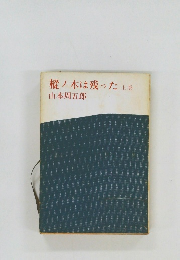 樅ノ木は残った
山本周五郎